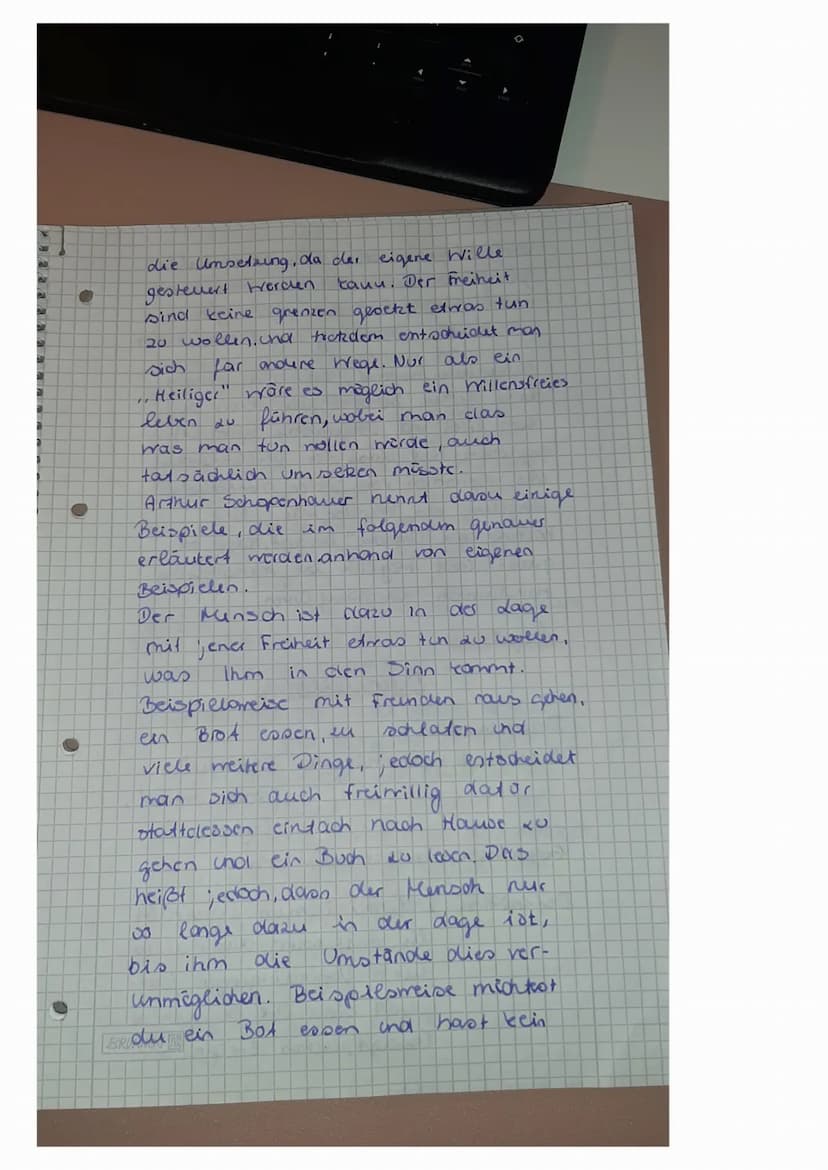 die Umsetzung, da der eigene Wille
gesteuert werden kann. Der Freiheit
sind keine grenzen gesetzt etwas tun
zu wollen, und trotzdem entscheidet man
sich für andere Wege. Nur als ein
„Heiliger" wäre es möglich ein willensfreies
leben zu führen, wobei man das
was man tun wollen würde, auch
tatsächlich umsetzen müsste.
Arthur Schopenhauer nennt davon einige
Beispiele, die im folgendem genauer
erläutert werden anhand von eigenen
Beispielen.
Der Mensch ist dazu in der Lage
mit jener Freiheit etwas tun zu wollen,
was Ihm in den Sinn kommt.
Beispielsweise mit Freunden raus gehen,
ein Brot essen, zu schlafen und
viele weitere Dinge, jedoch entscheidet
man sich auch freiwillig dafür
stattdessen einfach nach Hause zu
gehen und ein Buch zu lesen. Das
heißt jedoch, dass der Mensch nur
so lange dazu in der Lage ist,
bis ihm die Umstände dies ver-
unmöglichen. Beispielsweise möchtest
du ein Bot essen und hast kein